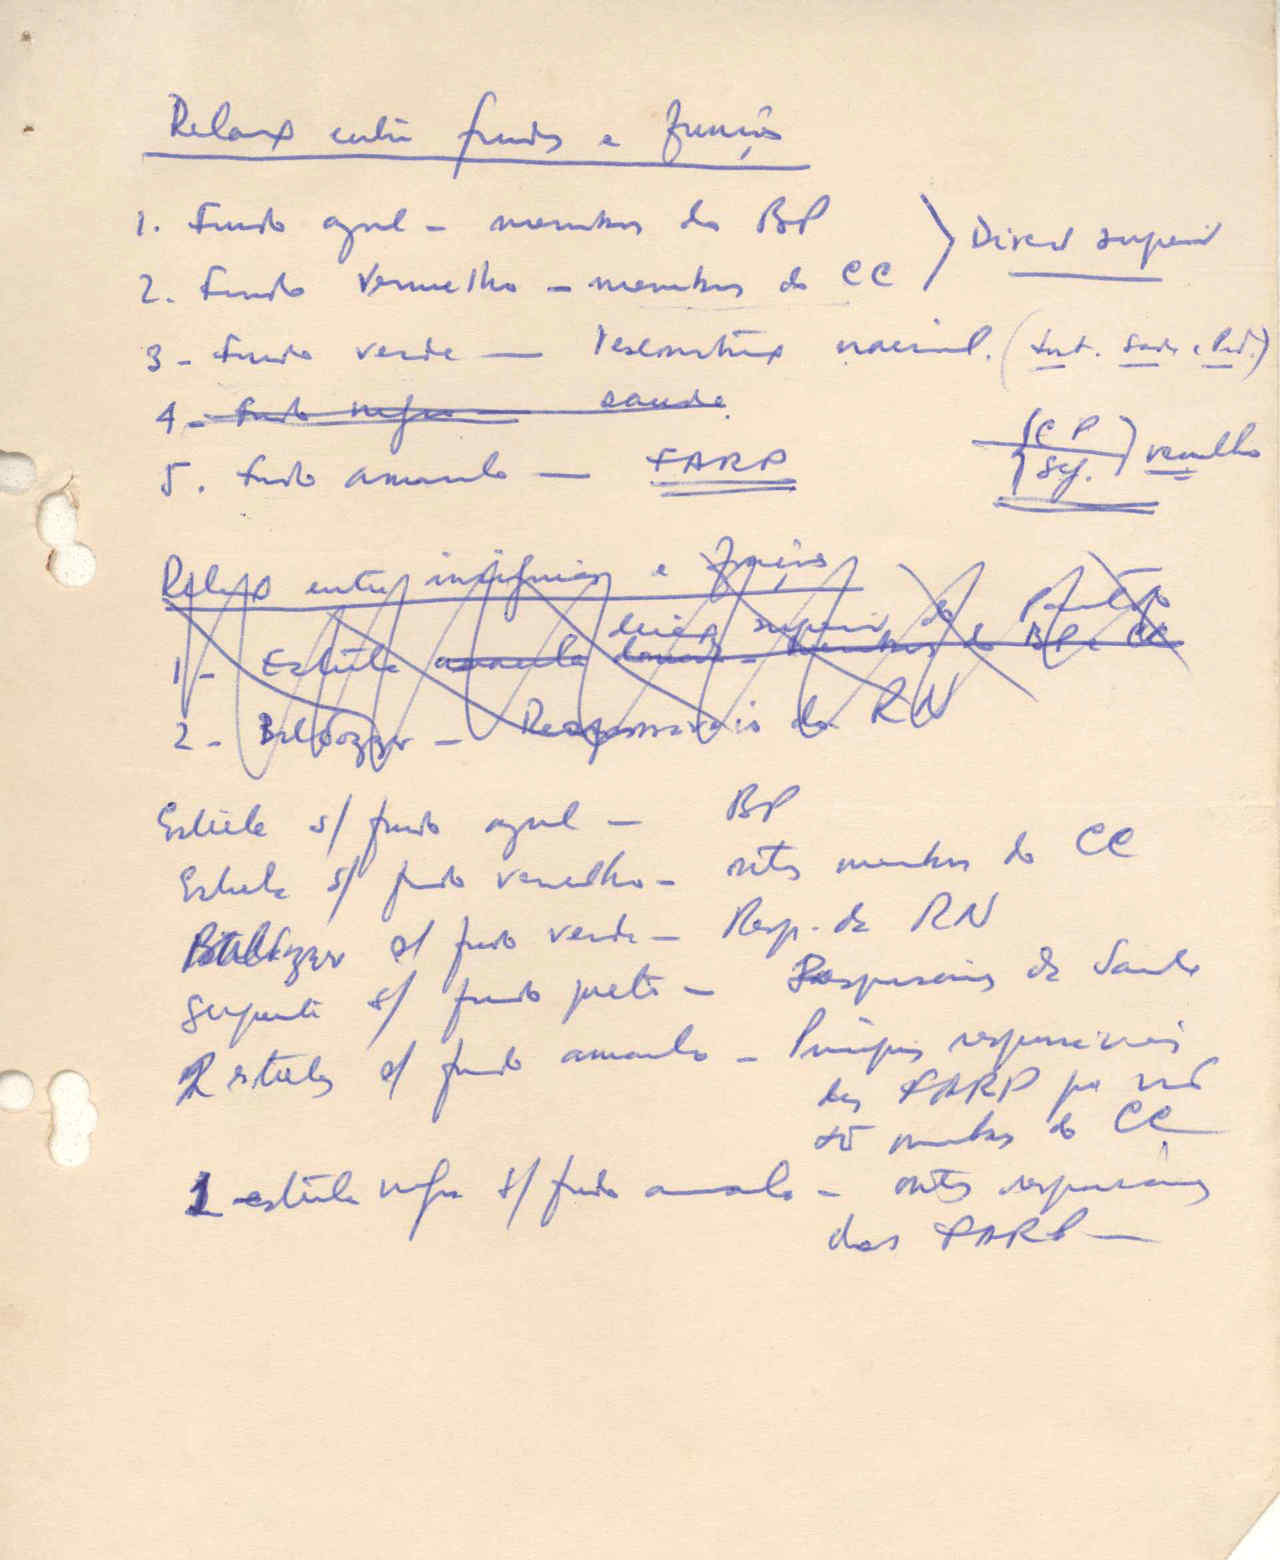 Relação entre fundos e funções
1. Fundo azul - membros do BP
Direcção superior
2. Fundo vermelho - membros do CC
3 - Fundo verde - Reconstrução nacional. (Inst. Saúde e Prod.)
4 - Fundo negro - saúde
5. Fundo amarelo - FARP
CP
Seg.
vermelho
Relação entre insígnias e funções
direcção superior do Partido
1 - Estrela amarela - membros do BP e CC
2 - Responsáveis da RN
Estrela s/ fundo azul - BP
Estrela s/ fundo vermelho - outros membros do CC
s/ fundo verde - Resp. da RN
Serpente s/ fundo preto - Responsáveis da Saúde
2 estrelas s/ fundo amarelo - Principais responsáveis
das FARP que não
são membros do CC
1 estrela negra s/ fundo amarelo - outros responsáveis
das FARP -